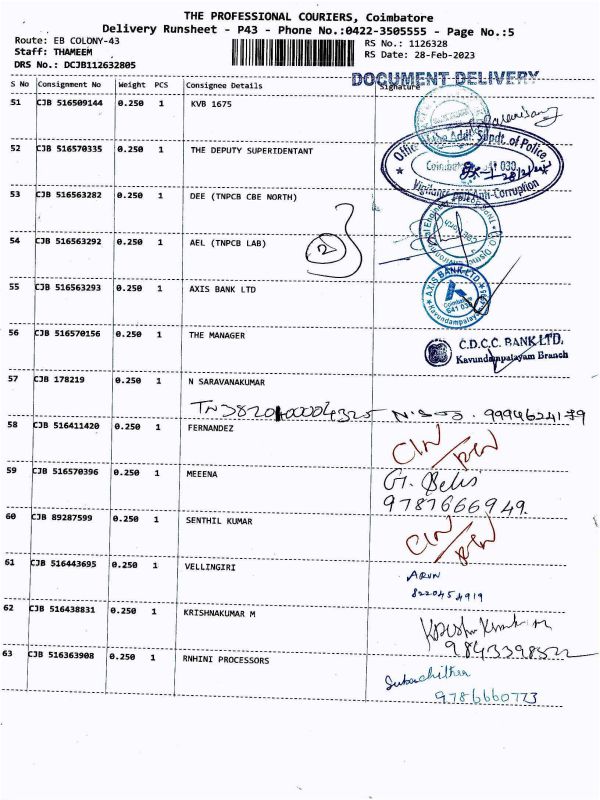 THE PROFESSIONAL COURIERS, Coimbatore
Delivery Runsheet - P43 - Phone No.:0422-3505555 - Page No.:5
Route: EB COLONY-43
RS No.: 1126328
Staff: THAMEEM
RS Date: 28-Feb-2023
DRS No.: DCJB112632805
DOCUMENT DELIVERY
S No Consignment No Weight PCS Consignee Details Signature
51 CJB 516509144 0.250 1 KVB 1675
52 CJB 516570335 0.250 1 THE DEPUTY SUPERIDENTANT
Office of the Addl. Supdt. of Police,
Vigilance and Anti-Corruption
53 CJB 516563282 0.250 1 DEE (TNPCB CBE NORTH)
54 CJB 516563292 0.250 1 AEL (TNPCB LAB)
2
55 CJB 516563293 0.250 1 AXIS BANK LTD
AXIS BANK LTD
Coimbatore
Kavundampalayam
56 CJB 516570156 0.250 1 THE MANAGER
C.D.C.C. BANK LTD.
Kavundampalayam Branch
57 CJB 178219 0.250 1 N SARAVANAKUMAR
58 CJB 516411420 0.250 1 FERNANDEZ
59 CJB 516570396 0.250 1 MEEENA
9787666949.
60 CJB 89287599 0.250 1 SENTHIL KUMAR
61 CJB 516443695 0.250 1 VELLINGIRI
ARUN
8220454919
62 CJB 516438831 0.250 1 KRISHNAKUMAR M
63 CJB 516363908 0.250 1 RNHINI PROCESSORS
9786660773